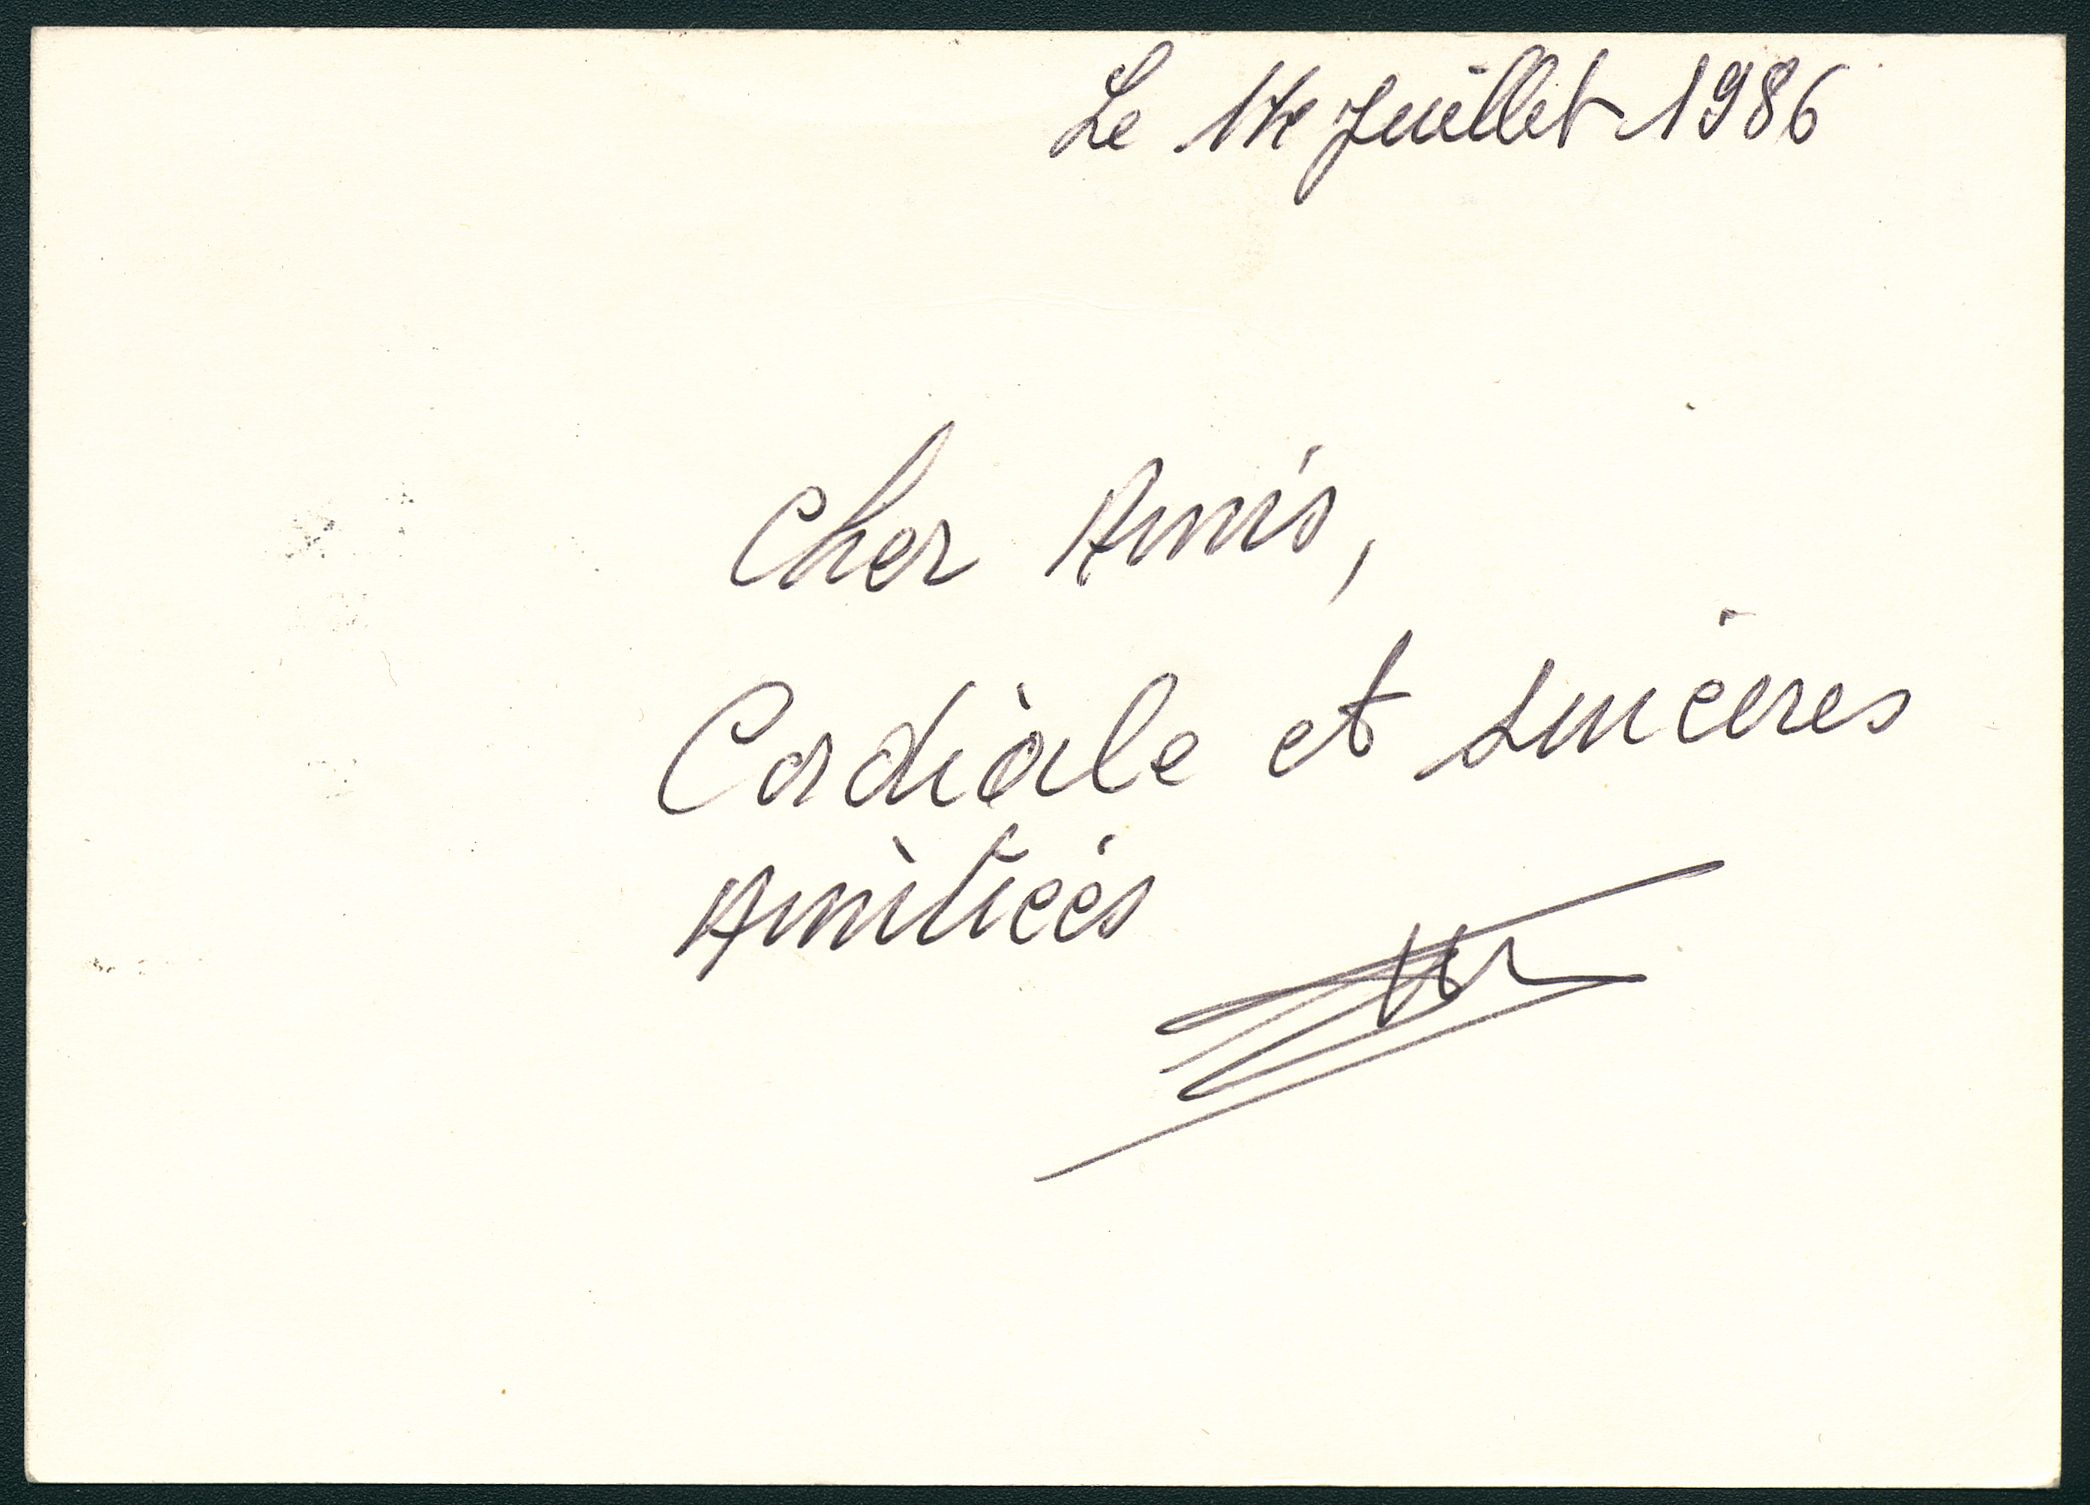 Le 14 Juillet 1986
Cher Amis,
Cordiale et sincères
Amitiées